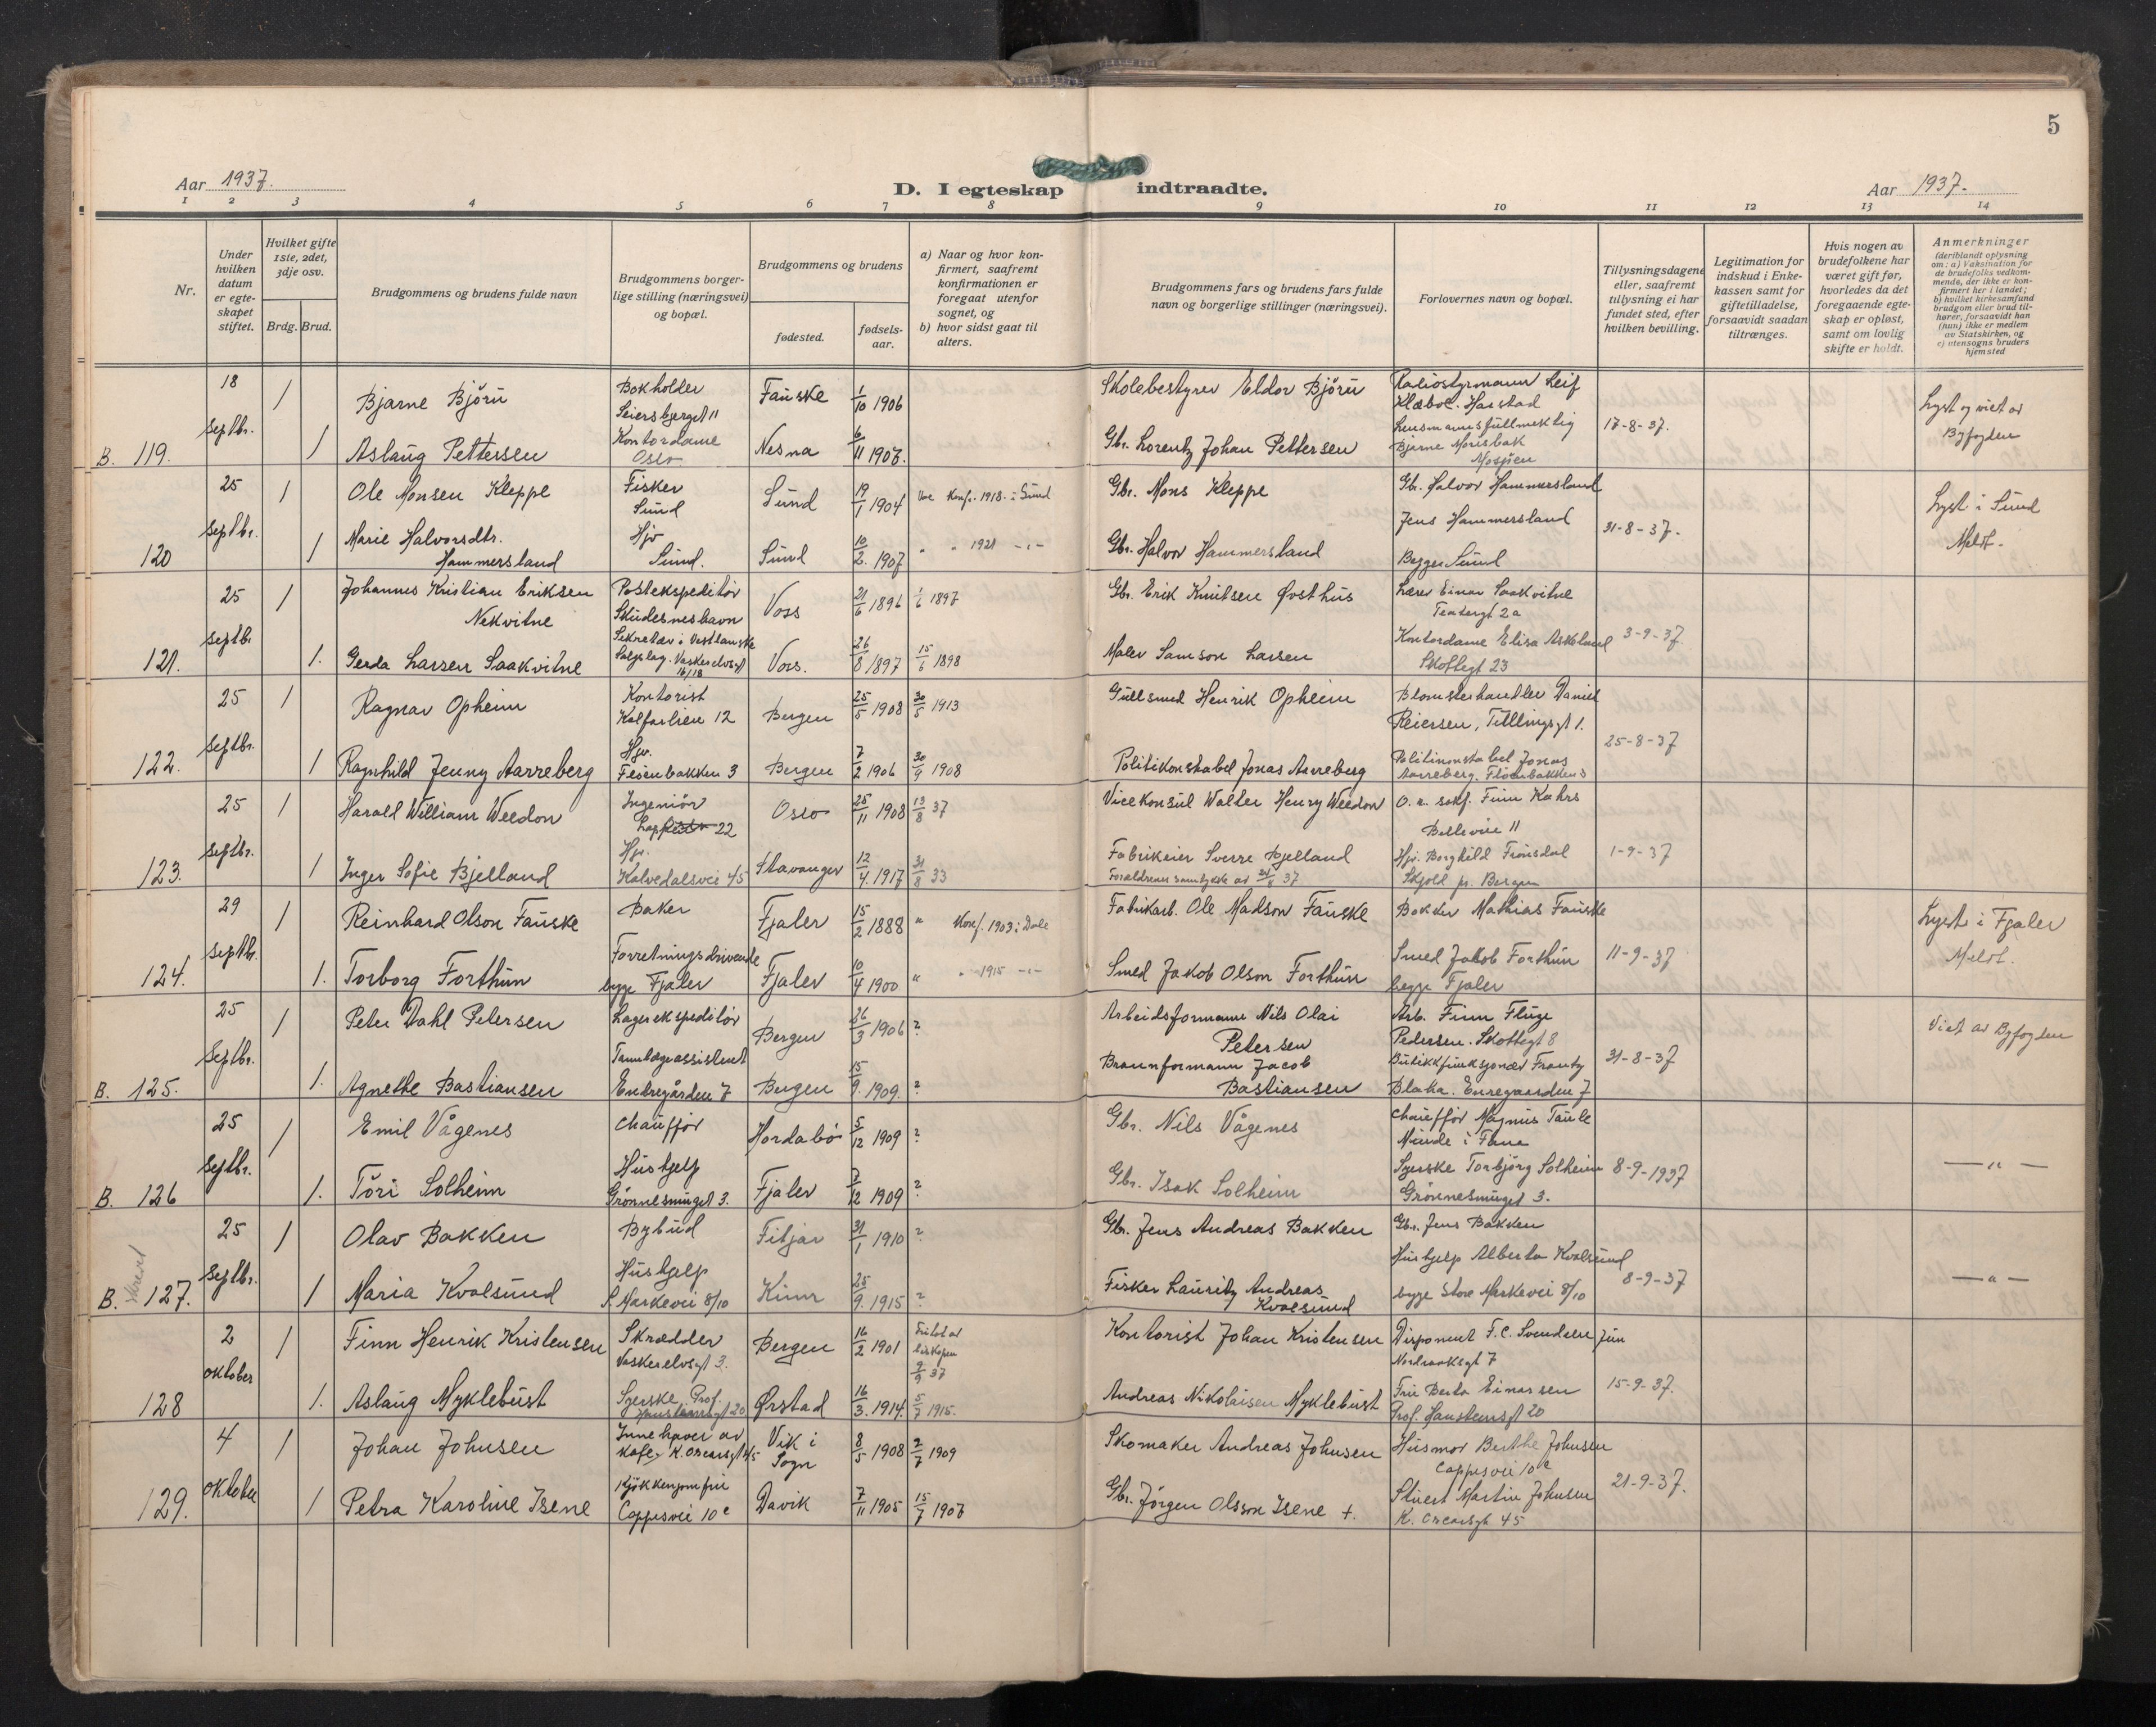 5
Aar 1937.
D. I egteskap indtraadte.
Aar 1937.
1 2 3 4 5 6 7 8 9 10 11 12 13 14
Nr.
Under hvilken datum er egteskapet stiftet.
Hvilket gifte 1ste, 2det, 3dje osv.
Brdg. Brud.
Brudgommens og brudens fulde navn
Brudgommens borgerlige stilling (næringsvei) og bopæl.
Brudgommens og brudens
fødested.
fødselsaar.
a) Naar og hvor konfirmert, saafremt konfirmationen er foregaat utenfor sognet, og
b) hvor sidst gaat til alters.
Brudgommens fars og brudens fars fulde navn og borgerlige stillinger (næringsvei).
Forlovernes navn og bopæl.
Tillysningsdagene eller, saafremt tillysning ei har fundet sted, efter hvilken bevilling.
Legitimation for indskud i Enkekassen samt for giftetilladelse, forsaavidt saadan tiltrænges.
Hvis nogen av brudefolkene har været gift før, hvorledes da det foregaaende egteskap er opløst, samt om lovlig skifte er holdt.
Anmerkninger (deriblandt oplysning om: a) Vaksination for de brudefolks vedkommende, der ikke er konfirmert her i landet; b) hvilket kirkesamfund brudgom eller brud tilhører, forsaavidt han (hun) ikke er medlem av Statskirken, og c) utensogns bruders hjemsted
B. 119. 18 Septbr. 1 Bjarne Björu Bokholder Seiersbjerget 11 Fauske 1/10 1906 Skolebestyrer Eldor Björu Radiostyrmann Leif Klæboe. Harstad 17-8-37. Lyst og viet av Byfogden
1 Aslaug Pettersen Kontordame Oslo Nesna 6/11 1907. Gbr. Lorentz Johan Pettersen Lensmannsfullmektig Bjarne Mosjöen
120 25 Septbr. 1 Ole Monsen Kleppe Fisker Sund Sund 19/1 1904 Konf. 1918. i Sund Gbr. Mons Kleppe Gbr. Halvor Hammersland 31-8-37. Lyst i Sund Meldt.
1 Marie Halvorsdtr. Hammersland Hjv Sund. Sund 10/2. 1907 " " 1921 -"- Gbr. Halvor Hammersland Jens Hammersland Begge Sund
121. 25 Septbr 1 Johannes Kristian Eriksen Nekvitne Postekspeditör Skudesneshavn Voss 21/6 1896 1/6 1897 Gbr. Erik Knutsen Øvsthus Lærer Einar Saakvitne Teatergt 2a 3-9-37.
1. Gerda Larsen Saakvitne Sekretær i Vestlanske Salgslag. Vaskerelvsgt 16/18 Voss. 26/8 1897 15/6 1898 Maler Samson Larsen Kontordame Elisa Askeland Skottegt 23
122. 25 Septbr. 1 Ragnar Opheim Kontorist Kalfarlien 12 Bergen 25/5 1908 30/5 1913 Gullsmed Henrik Opheim Blomsterhandler Daniel Reiersen, Tullingsgt 1. 25-8-37
1 Ragnhild Jenny Aarreberg Hjv. Flöenbakken 3 Bergen 7/2 1906 30/9 1908 Politikonstabel Jonas Aarreberg Jonas Aarreberg. Flöenbakken 3
123. 25 Septbr. 1 Harald William Weedon Ingeniör 22 Oslo 25/11 1908 13/8 37 Vicekonsul Walter Henry Weedon O.r. sakf. Finn Kahrs Bellevue 11 1-9-37
1 Inger Sofie Bjelland Hjv. Kalvedalsvei 45 Stavanger 12/4. 1917 31/8 33 Fabrikeier Sverre Bjelland Foreldrenes samtykke av 37 Hjv. Borghild Frönsdal Skjold pr. Bergen
124. 29 Septbr. 1 Reinhard Olson Fauske Baker Fjaler 15/2 1888 " Konf. 1903 i Dale Fabrikarb. Ole Madson Fauske Bokker Mathias Fauske 11-9-37 Lyst i Fjaler Meldt.
1. Torborg Forthun Forretningsdrivende begge Fjaler Fjaler 10/4 1900 " " 1915 -"- Smed Jakob Olson Forthun Smed Jakob Forthun begge Fjaler
B. 125. 25 Septbr. 1 Peter Dahl Petersen Lagerekspeditör Bergen 26/3 1906 ? Arbeidsformann Nils Olai Petersen Arb. Finn Fluge Pedersen. Skottegt 8 31-8-37 Viet av Byfogden
1. Agnethe Bastiansen Tannlægeassistent Endregården 7 Bergen 15/9. 1909. ? Brannformann Jacob Bastiansen Butikkfunksjonær Frantz Blaka. Enregaarden 7
B. 126 25 Septbr. 1 Emil Vågenes Chaufför Hordabö 5/12 1909 ? Gbr. Nils Vågenes Chaufför Magnus Taule Minde i Fana 8-9-1937 — " —
1. Töri Solheim Hushjelp Grönnesmuget 3. Fjaler 7/12 1909 ? Gbr. Isak Solheim Syerske Torbjörg Solheim Grönnesmuget 3.
B. 127. 25 Septbr. 1 Olav Bakken Bybud Fitjar 31/1 1910 ? Gbr. Jens Andreas Bakken Gbr. Jens Bakken 8-9-37 — " —
1 Maria Kvalsund Hushjelp S. Markevei 8/10 Kinn 25/9. 1915 ? Fisker Lauritz Andreas Kvalsund Hushjelp Alberta Kvalsund begge Store Markevei 8/10
128 2 oktober 1 Finn Henrik Kristensen Skrædder Vaskerelvsgt 3. Bergen 16/2 1901 Fritatt av biskopen 9/9 37 Kontorist Johan Kristensen Disponent F.C. Svendsen jun Nordraaksgt 7 15-9-37.
1. Aslaug Myklebust Syerske. Prof. Hansteensgt 20 Ørstad 16/3. 1914. 5/7 1915. Andreas Nikolaisen Myklebust Fru Berta Einarsen Prof. Hansteensgt 20
129. 4 oktober 1 Johan Johnsen Innehaver av kafe. K. Oscarsgt 45 Vik i Sogn 8/5 1908 2/7 1909 Skomaker Andreas Johnsen Husmor Berthe Johnsen Coppesvei 10c 21-9-37.
1 Petra Karoline Isene Kjökkenjomfru Coppesvei 10c Davik 7/11 1905 15/7 1907 Gbr. Jörgen Olsson Isene +. Stuert Martin Johnsen K. Oscarsgt 45